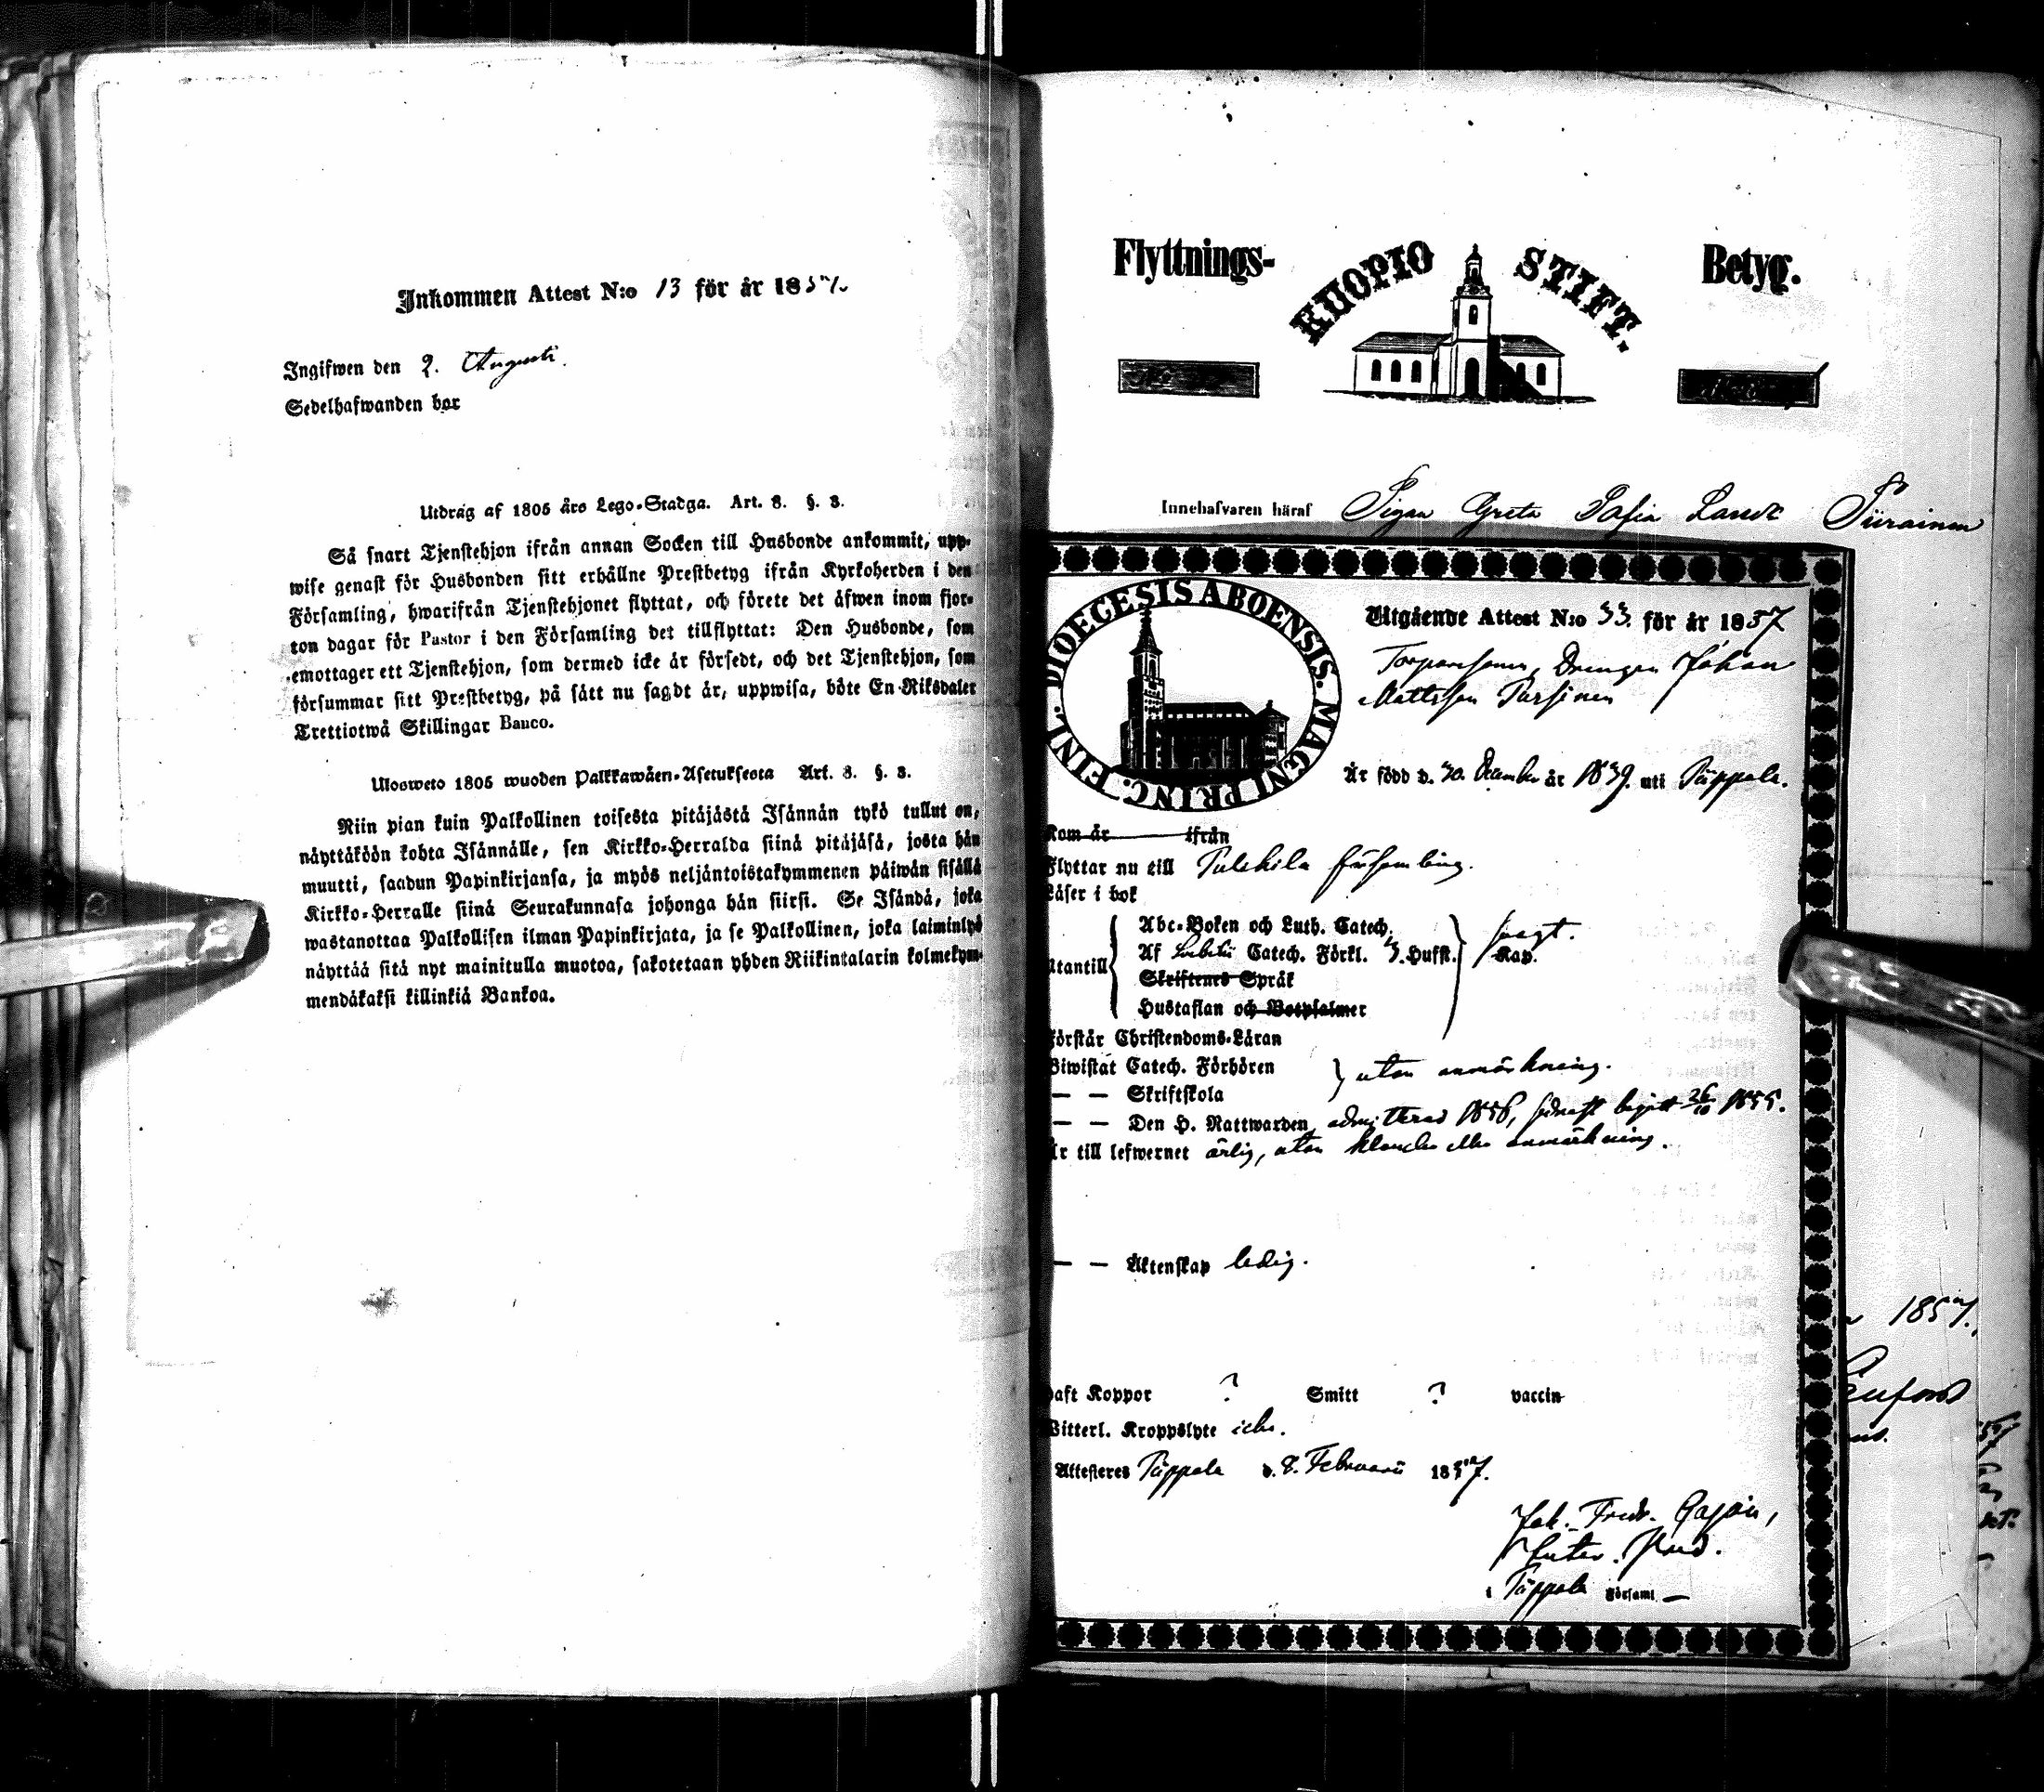 Inkommen Attest N:o 13 för år 1857.
Ingifwen den 2. Augusti.
Sedelhafwanden bor
Utdrag af 1805 års Lego-Stadga. Art. 8. §. 3.
Så snart Tjenstehjon ifrån annan Socken till Husbonde ankommit, upp-
wise genast för Husbonden sitt erhållne Prestbetyg ifrån Kyrkoherden i den
Församling, hwarifrån Tjenstehjonet flyttat, och förete det äfwen inom fjor-
ton dagar för Pastor i den Församling det tillflyttat: Den Husbonde, som
emottager ett Tjenstehjon, som dermed icke är försedt, och det Tjenstehjon, som
försummar sitt Prestbetyg, på sätt nu sagdt är, uppwisa, böte En Riksdaler
Trettiotwå Skillingar Banco.
Ulosweto 1805 wuoden Palkkawäen-Asetuksesta Art. 8. §. 3.
Niin pian kuin Palkollinen toisesta pitäjästä Isännän tykö tullut on,
näyttäköön kohta Isännälle, sen Kirkko-Herralda siinä pitäjäsä, josta hän
muutti, saadun Papinkirjansa, ja myös neljäntoistakymmenen päiwän sisällä
Kirkko-Herralle siinä Seurakunnasa johonga hän siirsi. Se Isändä, joka
wastanottaa Palkollisen ilman Papinkirjata, ja se Palkollinen, joka laiminlyö
näyttää sitä nyt mainitulla muotoa, sakotetaan yhden Riikintalarin kolmekym-
mendäkaksi killinkiä Bankoa.
Flyttnings- KUOPIO STIFT. Betyg.
Innehafvaren häraf Pigan Greta Sofia Piirainen
DIOECESIS ABOENSIS. MAGNI PRINC. FINL.
Utgående Attest N:o 33. för år 1857
Torparesonen, Drengen Johan
Mattsson
Är född d. 30. December år 1839. uti Piippola.
Kom år ifrån
Flyttar nu till Pulkkila församling.
Läser i bok
Abc-Boken och Luth. Catech.
Utantill Af Catech. Förkl. Hufst. Kap.
Skriftenes Språk
Hustaflan och Botpsalmer
Förstår Christendoms-Läran
Biwistat Catech. Förhören utan anmärkning.
— — Skriftskola
— — Den H. Nattwarden admitterad
Är till lefwernet ärlig, utan klander eller anmärkning.
— — Äktenskap ledig.
Haft Koppor ? Smitt ? vaccin
Witterl. Kroppslyte icke.
Attesteres Piippola d. 8. Februarii 1857.
Jak. Fredr.
i Piippola Församl
1857.